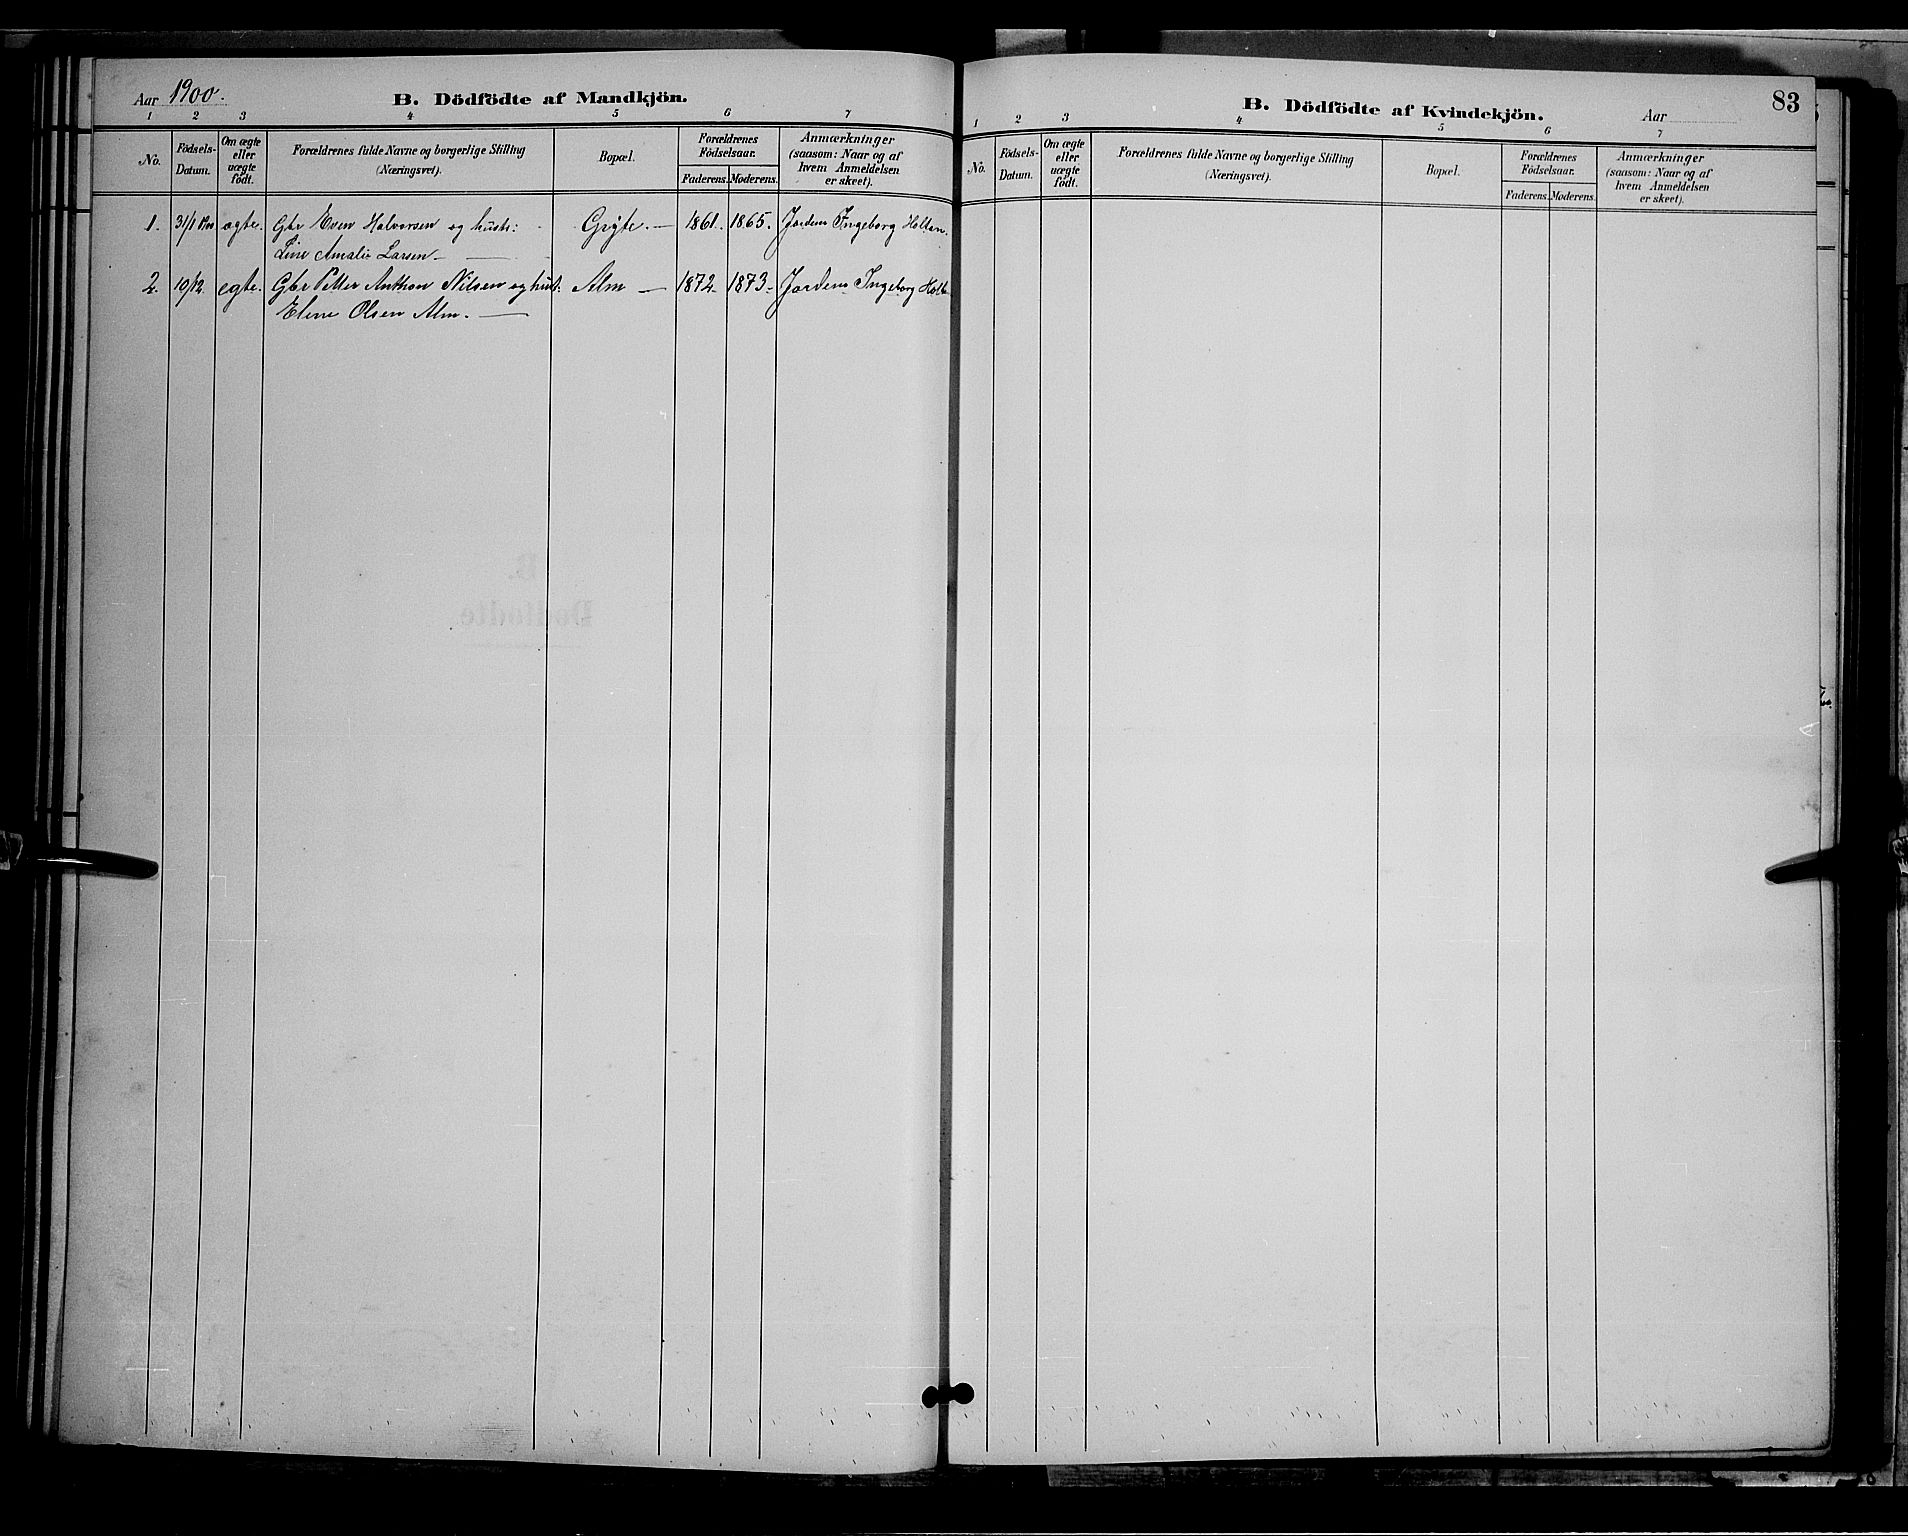 Aar 1900.
B. Dödfödte af Mandkjön.
1 2 3 4 5 6 7
No.
Födsels-
Datum.
Om ægte
eller
uægte
födt.
Forældrenes fulde Navne og borgerlige Stilling
(Næringsvei).
Bopæl.
Forældrenes
Födselsaar.
Faderens. Moderens.
Anmærkninger
(saasom: Naar og af
hvem Anmeldelsen
er skeet).
1. 31/1 1900 ægte. Gbr Even Halvorsen og hustr: Gryte. — 1861. 1865. Jordem Ingeborg Holtan.
Line Amalie Larsen —
2. 19/12. egte. Gbr Petter Anthon Nilsen og hust: Alm — 1872. 1873. Jordem Ingeborg
Eline Olsen Alm. —
B. Dödfödte af Kvindekjön.
Aar
83
1 2 3 4 5 6 7
No.
Födsels-
Datum.
Om ægte
eller
uægte
födt.
Forældrenes fulde Navne og borgerlige Stilling
(Næringsvei).
Bopæl.
Forældrenes
Födselsaar.
Faderens. Moderens.
Anmærkninger
(saasom: Naar og af
hvem Anmeldelsen
er skeet).